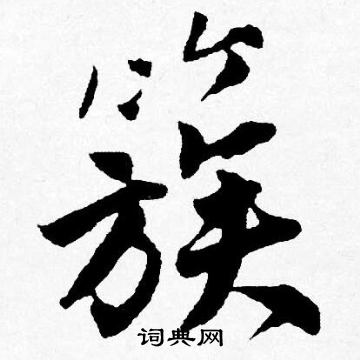 簇
词典网